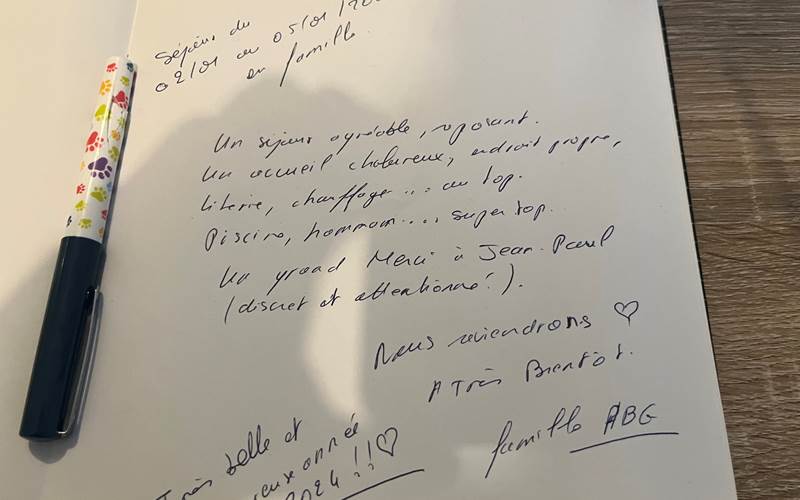 Séjour du
02/01 au 05/01/202
en famille.
Un séjour agréable, reposant.
Un accueil chaleureux, endroit propre,
literie, chauffage... au top.
Piscine, hammam..., super top.
Un grand Merci à Jean-Paul
(discret et attentionné!).
Nous reviendrons ♡
A Très Bientôt.
famille ABG
Très belle et
reuse année
2024 !!♡